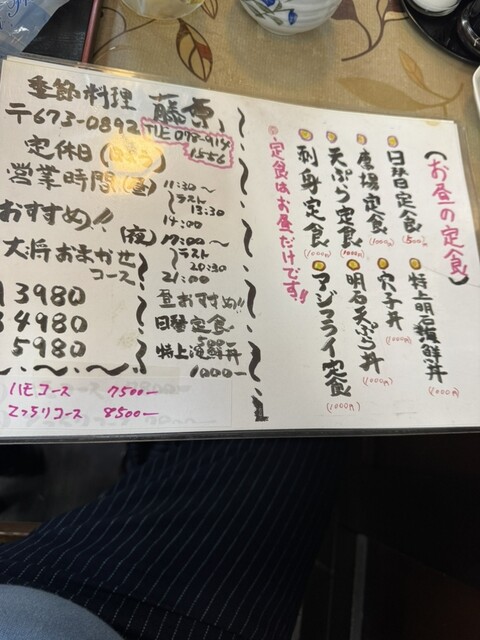 季節料理 藤原
〒673-0892 TEL 078-914
1556
定休日(
営業時間(昼) 11:30〜
ラスト
13:30
14:00
(夜) 17:00〜
ラスト
20:30
21:00
おすすめ!!
大将おまかせ
コース
3980
4980
5980
ハモコース 7500ー
てっちりコース 8500ー
昼おすすめ!!
日替定食
特上海鮮丼
1000ー
(お昼の定食)
日替定食
天ぷら定食
(1000円)
刺身定食
(1000円)
◎定食はお昼だけです!!
特上明石海鮮丼
(1000円)
穴子丼
(1000円)
明石天ぷら丼
(1000円)
アジフライ定食
(1000円)